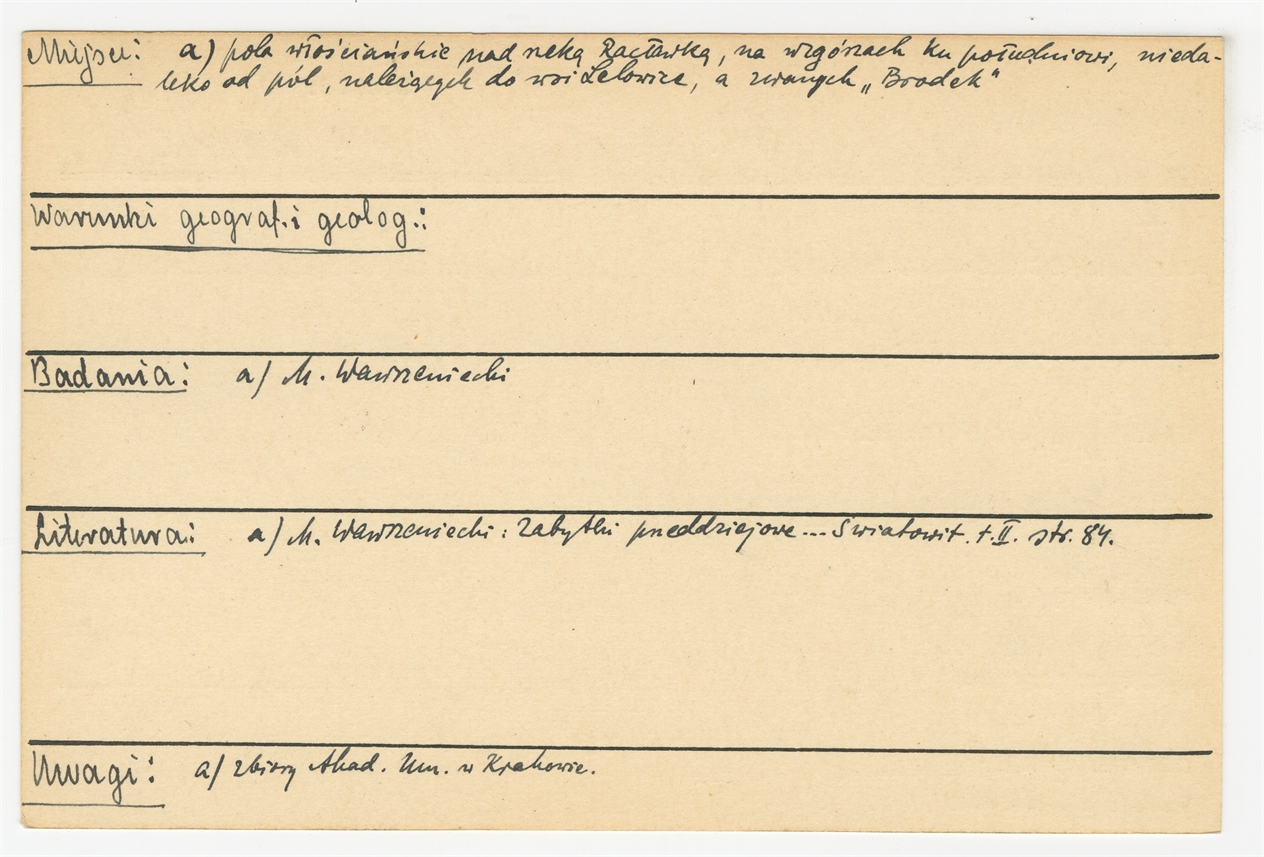 Miejsce: a) pola włościańskie nad rzeką Racławką, na wzgórzach ku południowi, nieda-
leko od pól, należących do wsi Lelowice, a zwanych „Brodek"
Warunki geograf. i geolog.:
Badania: a) M. Wawrzeniecki
Literatura: a) M. Wawrzeniecki: Zabytki przeddziejowe... Światowit. t. II. str. 84.
Uwagi: a) zbiory Akad. Um. w Krakowie.